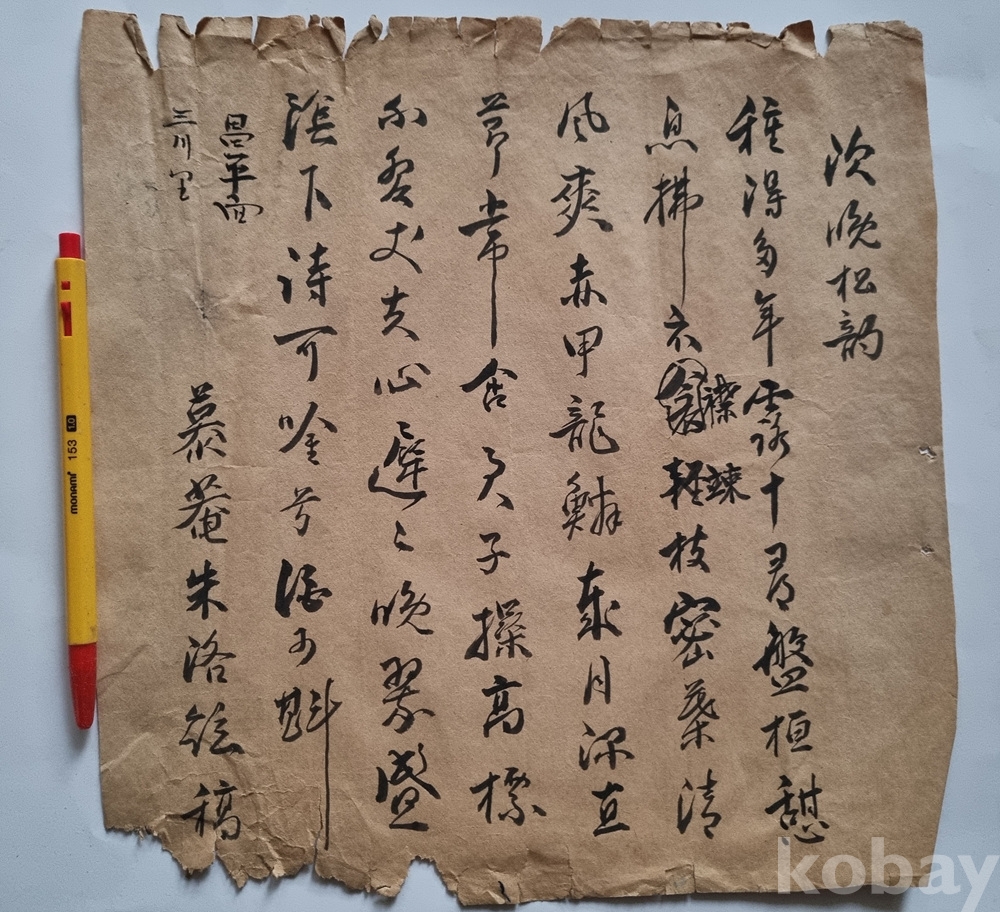 次晩松韵
種得多年露十尋盤桓憩
息拂衣襟輕竦枝密葉清
風爽赤甲龍鱗歲月深直
節常含君子操高標
不譽丈夫心遲〻晩翠盤
渓下詩可唫兮酒可斟
昌平面
三川里
慕菴朱洛綋稿
monami 153 1.0
kobay